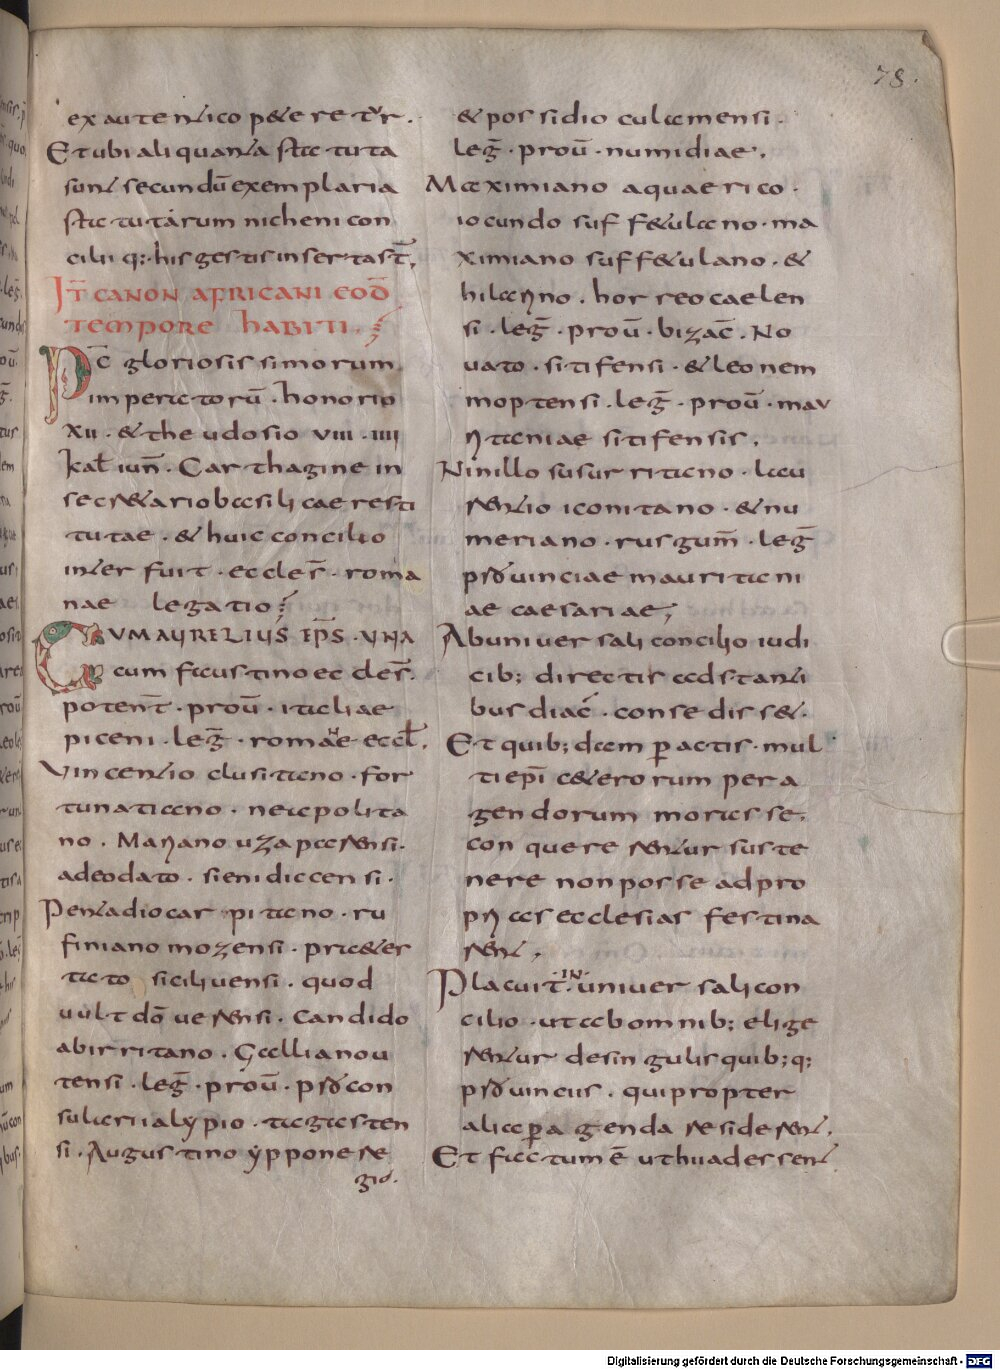 78.
ex autentico peteretur.
Et ubi aliquanta statuta
sunt secundū exemplaria
statutarum nicheni con
cilii q:· his gestis insertast̄.
IT̄ CANON AFRICANI EOD̄
TEMPORE HABITI.
Pc̄ gloriosissimorum
imperatorū · honorio
XII · & theudosio VIII · IIII
kal̄ iun̄ · Carthagine in
secretario basilicae resti
tutae · & huic concilio
interfuit · eccles̄ · roma
nae legatio;
CUM AURELIUS EP̄S · UNA
cum faustino eccles̄.
potent̄ · proū · italiae
piceni · leḡ · romane eccl̄.
Vincentio clusitano · for
tunatiano · neapolita
no · Mariano uzapparensi ·
adeodato · sienidiccensi ·
Pentadio carpitano · ru
finiano mozensi · praeter
tato siciliuensi · quod
uult dō ueresensi · Candido
abirritano · Gallianou
tensi · leḡ · proū · procon
sulari alypio · tagasten
si · Augustino ypponere
gio.
& possidio culamensi ·
leḡ · proū · numidiae.
Maximiano aquaerico ·
iocundo suffetulano · ma
ximiano suffetulano · &
hilarino · horreocaelen
si · leḡ · proū · bizac̄ · No
uato · sitifensi · & leonem
moptensi · leḡ · proū · mau
ritaniae sitifensis.
Ninillo susurritano · lau
rentio iconitano · & nu
meriano · rusgum̄ · leḡ
prouinciae mauritani
ae caesariae;
Ab uniuersali concilio iudi
cib; directis adstanti
bus diac̄ · consedisset.
Et quib;dam peractis · mul
ti ep̄i ceterorum pera
gendorum moras se
con querentur suste
nere non posse ad pro
prias ecclesias festina
rent.
Placuit ·IN· uniuersali con
cilio · ut ab omnib; elige
rentur de singulis quib;q;
prouinciis · qui propter
alia peragenda residerent.
Et factum ē ut hii adessent
Digitalisierung gefördert durch die Deutsche Forschungsgemeinschaft - DFG